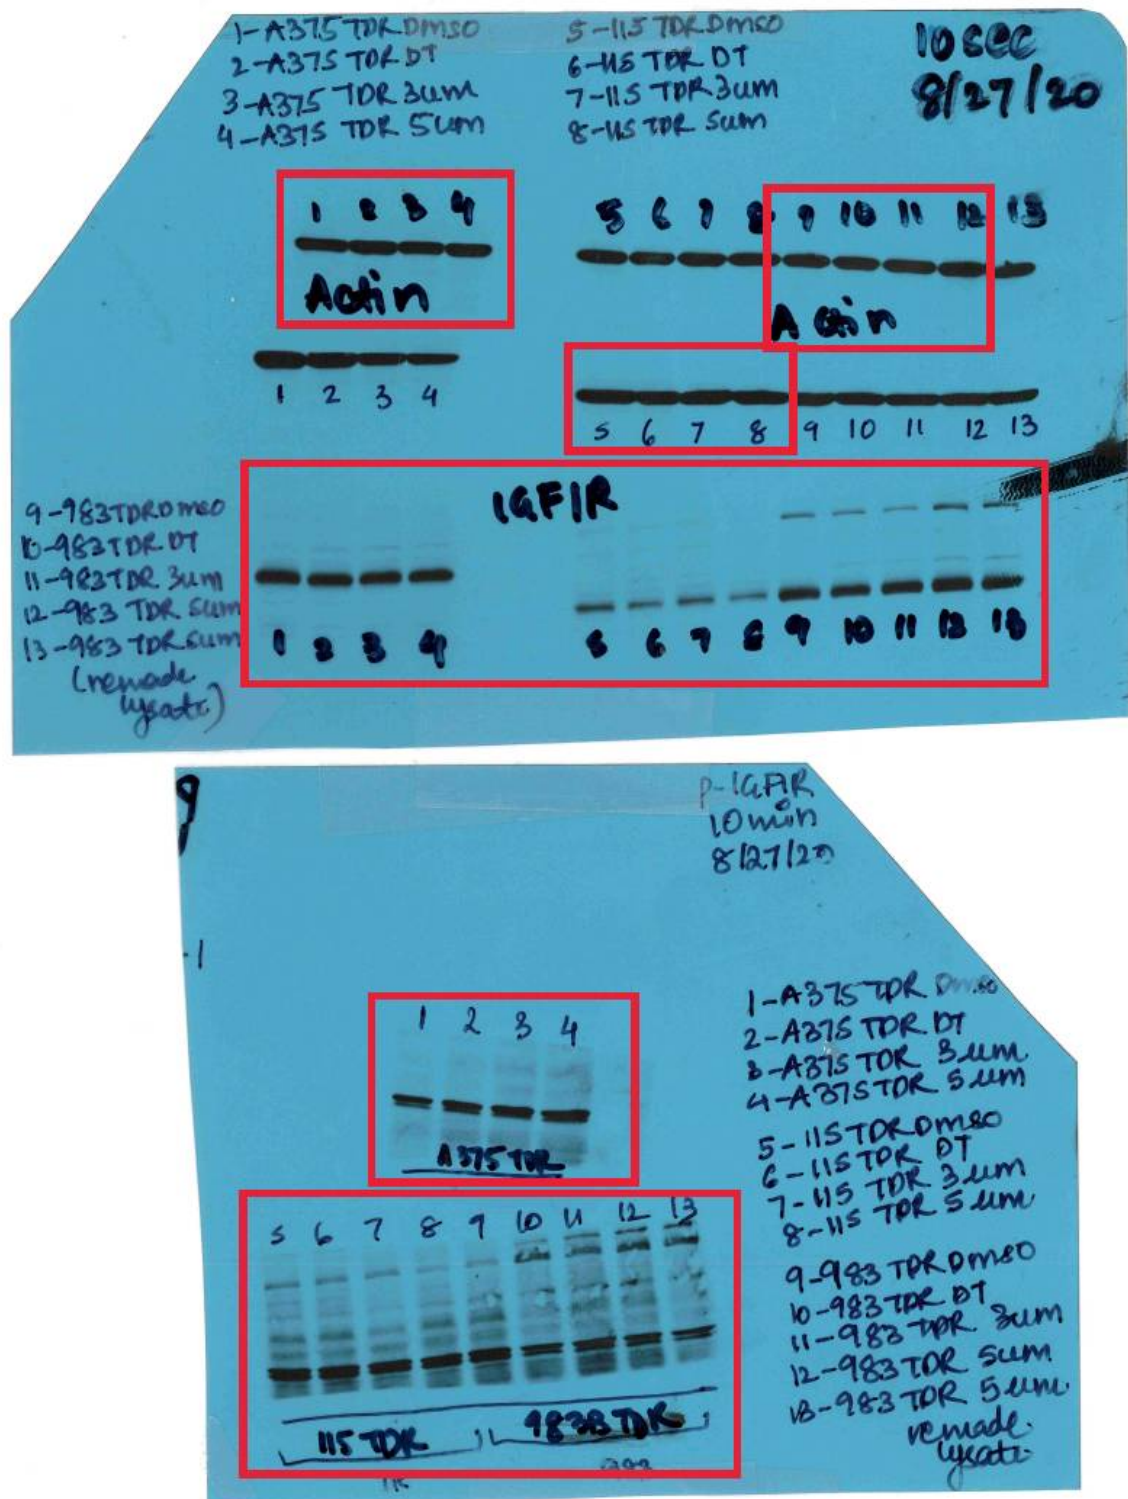 1-A375 TDR DMSO
2-A375 TDR DT
3-A375 TDR 3um
4-A375 TDR 5um
5-115 TDR DMSO
6-115 TDR DT
7-115 TDR 3um
8-115 TDR 5um
10 sec
8/27/20
1 2 3 4
Actin
5 6 7 8 9 10 11 12 13
Actin
1 2 3 4
5 6 7 8 9 10 11 12 13
IGFIR
9-983 TDR DMSO
10-983 TDR DT
11-983 TDR 3um
12-983 TDR 5um
13-983 TDR 5um
(remade
lysate)
1 2 3 4
5 6 7 8 9 10 11 12 13
P-IGFIR
10 min
8/27/20
-1
1 2 3 4
A375 TDR
1-A375 TDR DMSO
2-A375 TDR DT
3-A375 TDR 3um
4-A375 TDR 5um
5-115 TDR DMSO
6-115 TDR DT
7-115 TDR 3um
8-115 TDR 5um
9-983 TDR DMSO
10-983 TDR DT
11-983 TDR 3um
12-983 TDR 5um
13-983 TDR 5um
remade
lysate
5 6 7 8 9 10 11 12 13
115 TDR
983B TDR
115
983